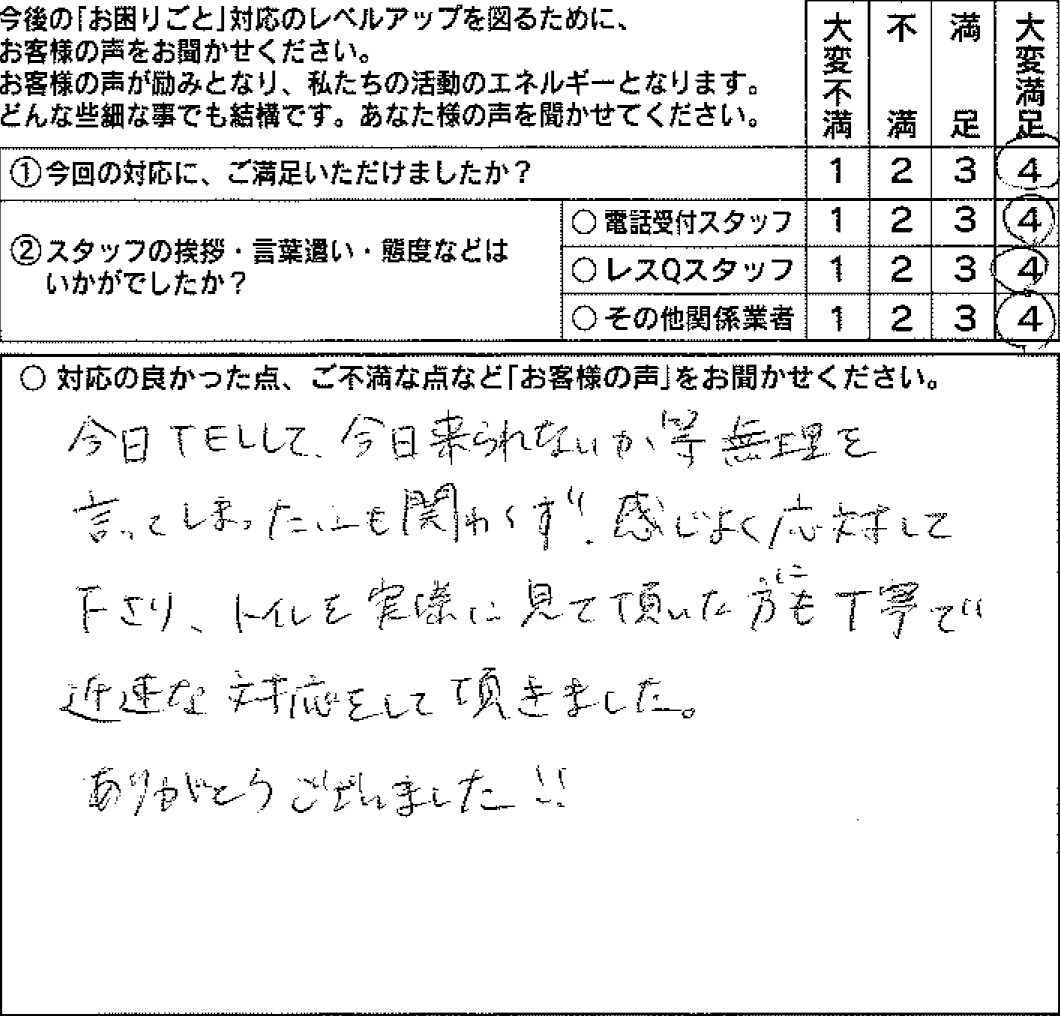 今後の｢お困りごと｣対応のレベルアップを図るために、
お客様の声をお聞かせください。
お客様の声が励みとなり、私たちの活動のエネルギーとなります。
どんな些細な事でも結構です。あなた様の声を聞かせてください。
大変不満 不満 満足 大変満足
①今回の対応に、ご満足いただけましたか？ 1 2 3 4
②スタッフの挨拶・言葉遣い・態度などは
いかがでしたか？
○電話受付スタッフ 1 2 3 4
○レスQスタッフ 1 2 3 4
○その他関係業者 1 2 3 4
○ 対応の良かった点、ご不満な点など｢お客様の声｣をお聞かせください。
今日TELして、今日来られないか等無理を
言ってしまったにも関わらず、感じよく応対して
下さり、トイレを実際に見て頂いた方も丁寧で
迅速な対応をして頂きました。
ありがとうございました!!